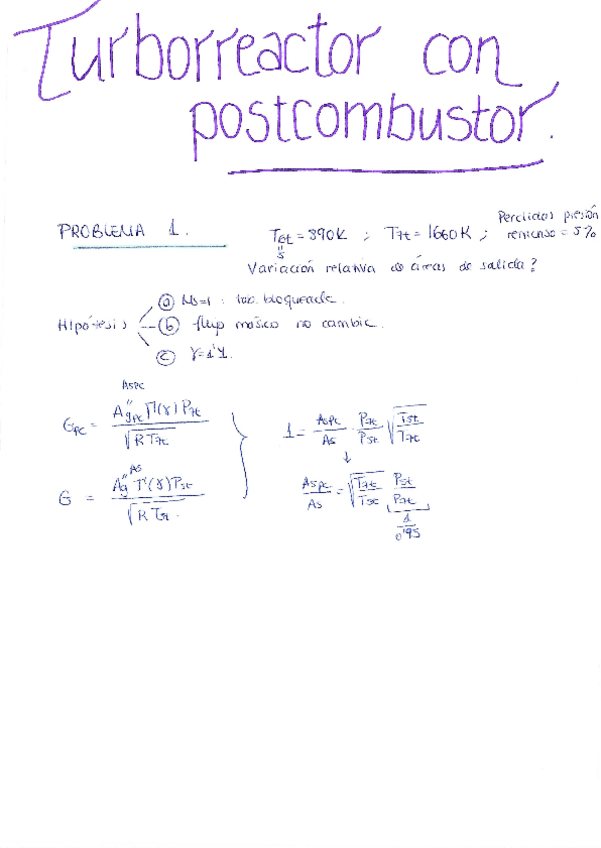 Turborreactor con
postcombustor.
PROBLEMA 1.
T6t = 890K ; T7t = 1660K ; Perdidas presión remicaso = 5%
5
Variación relativa de áreas de salida?
Hipótesis
(a) Ms=1 : tob. bloqueada.
(b) flujo másico no cambie.
(c) γ=1'4.
ASPC
G_PC = A"g_PC Γ(γ) P7t / √(R T7t)
AS
G = A"g Γ(γ) P5t / √(R T5t)
1 = ASPC/AS · P7t/P5t √(T5t/T7t)
↓
ASPC/AS = √(T7t/T5t) P5t/P7t
1/0'95